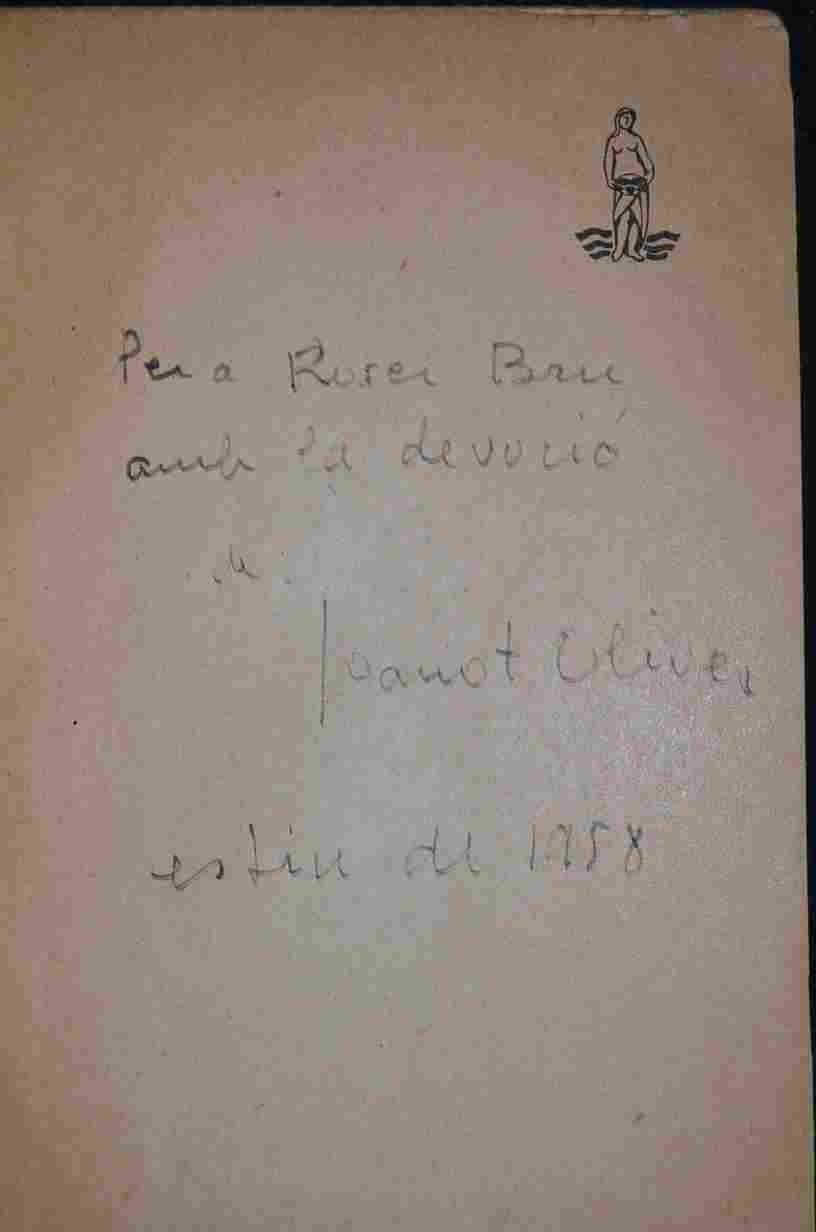 Per a Roser Bru
amb la devoció
Joanot Oliver
estiu de 1958